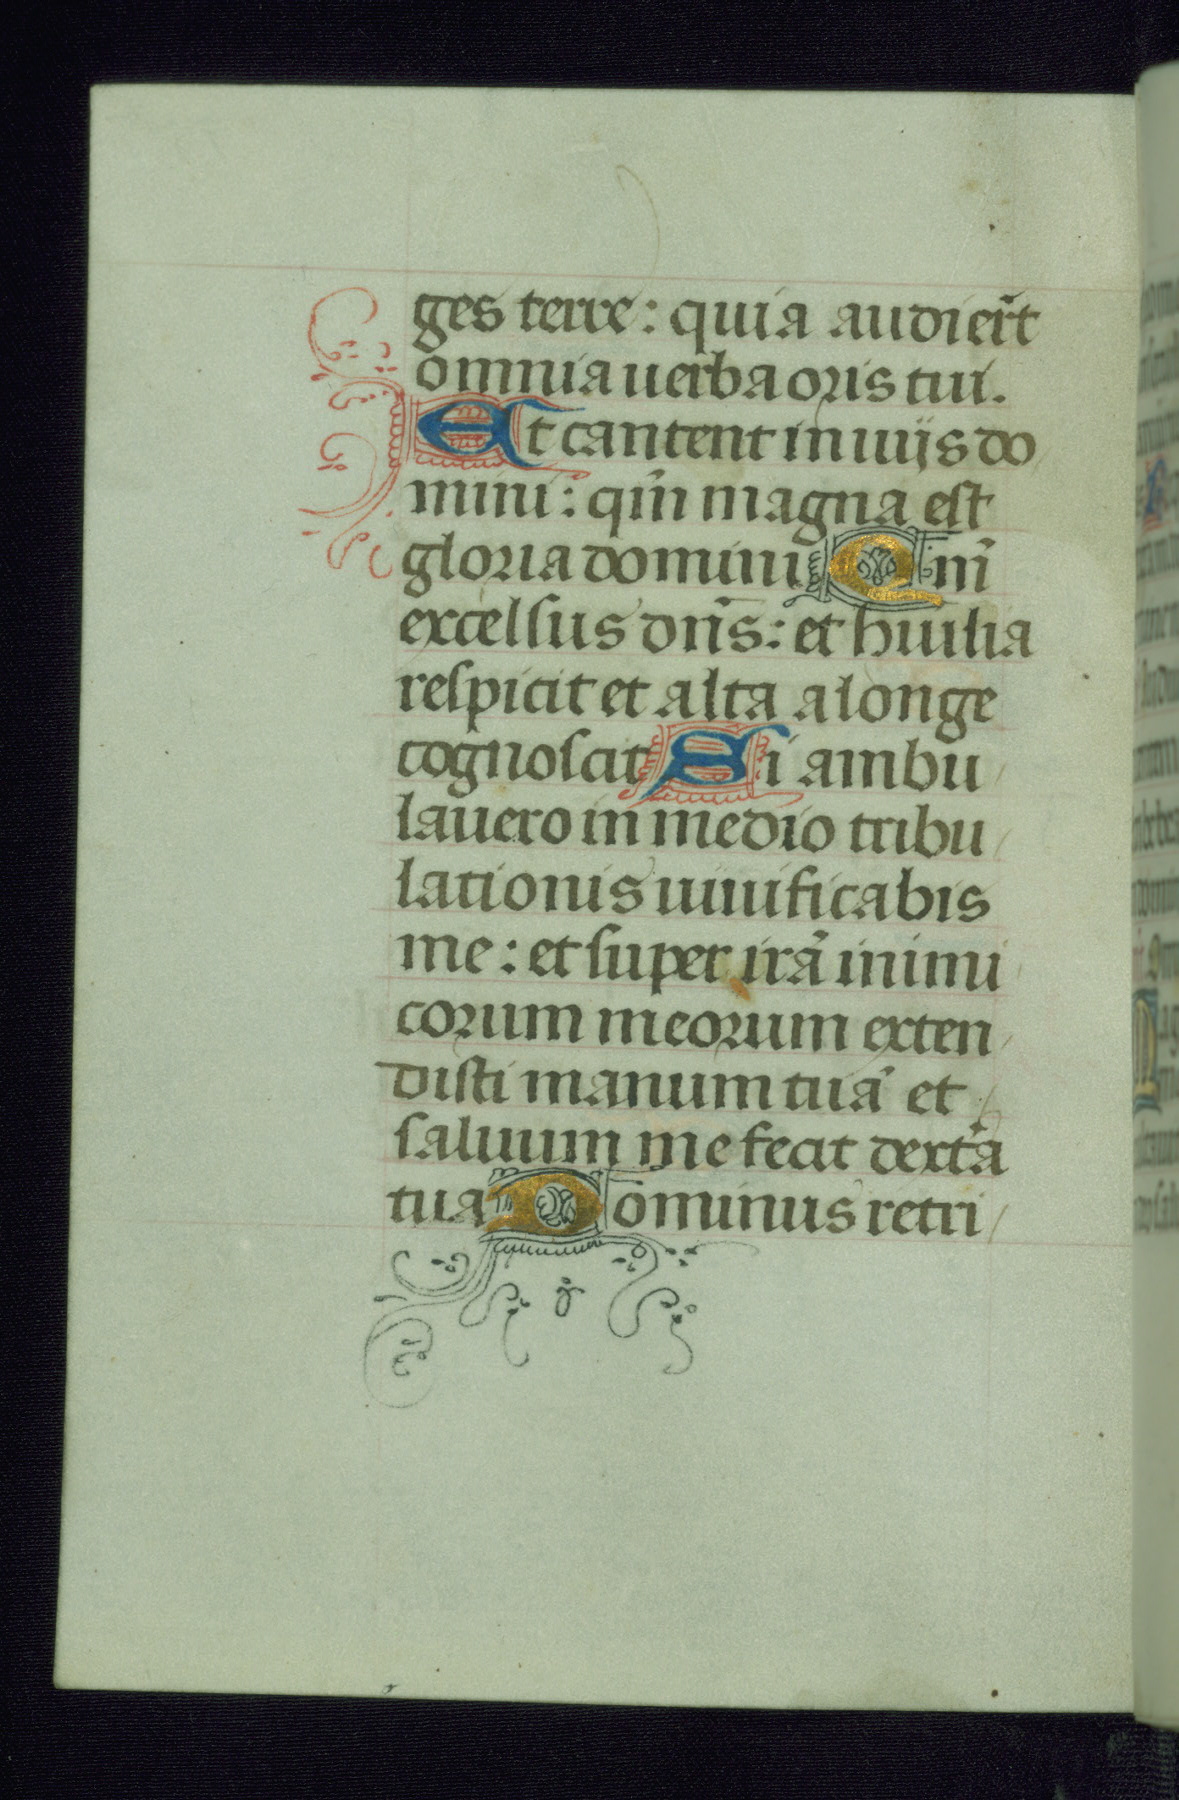 ges terre: quia audiert̄
omnia uerba oris tui.
Et cantent in uijs do
mini: qm̄ magna est
gloria domini Qm̄
excelsus dn̄s: et huīlia
respicit et alta a longe
cognoscit Si ambu
lauero in medio tribu
lationis uiuificabis
me: et super irā inimi
corum meorum exten
disti manum tuā et
saluum me fecit dext̄a
tua Dominus retri